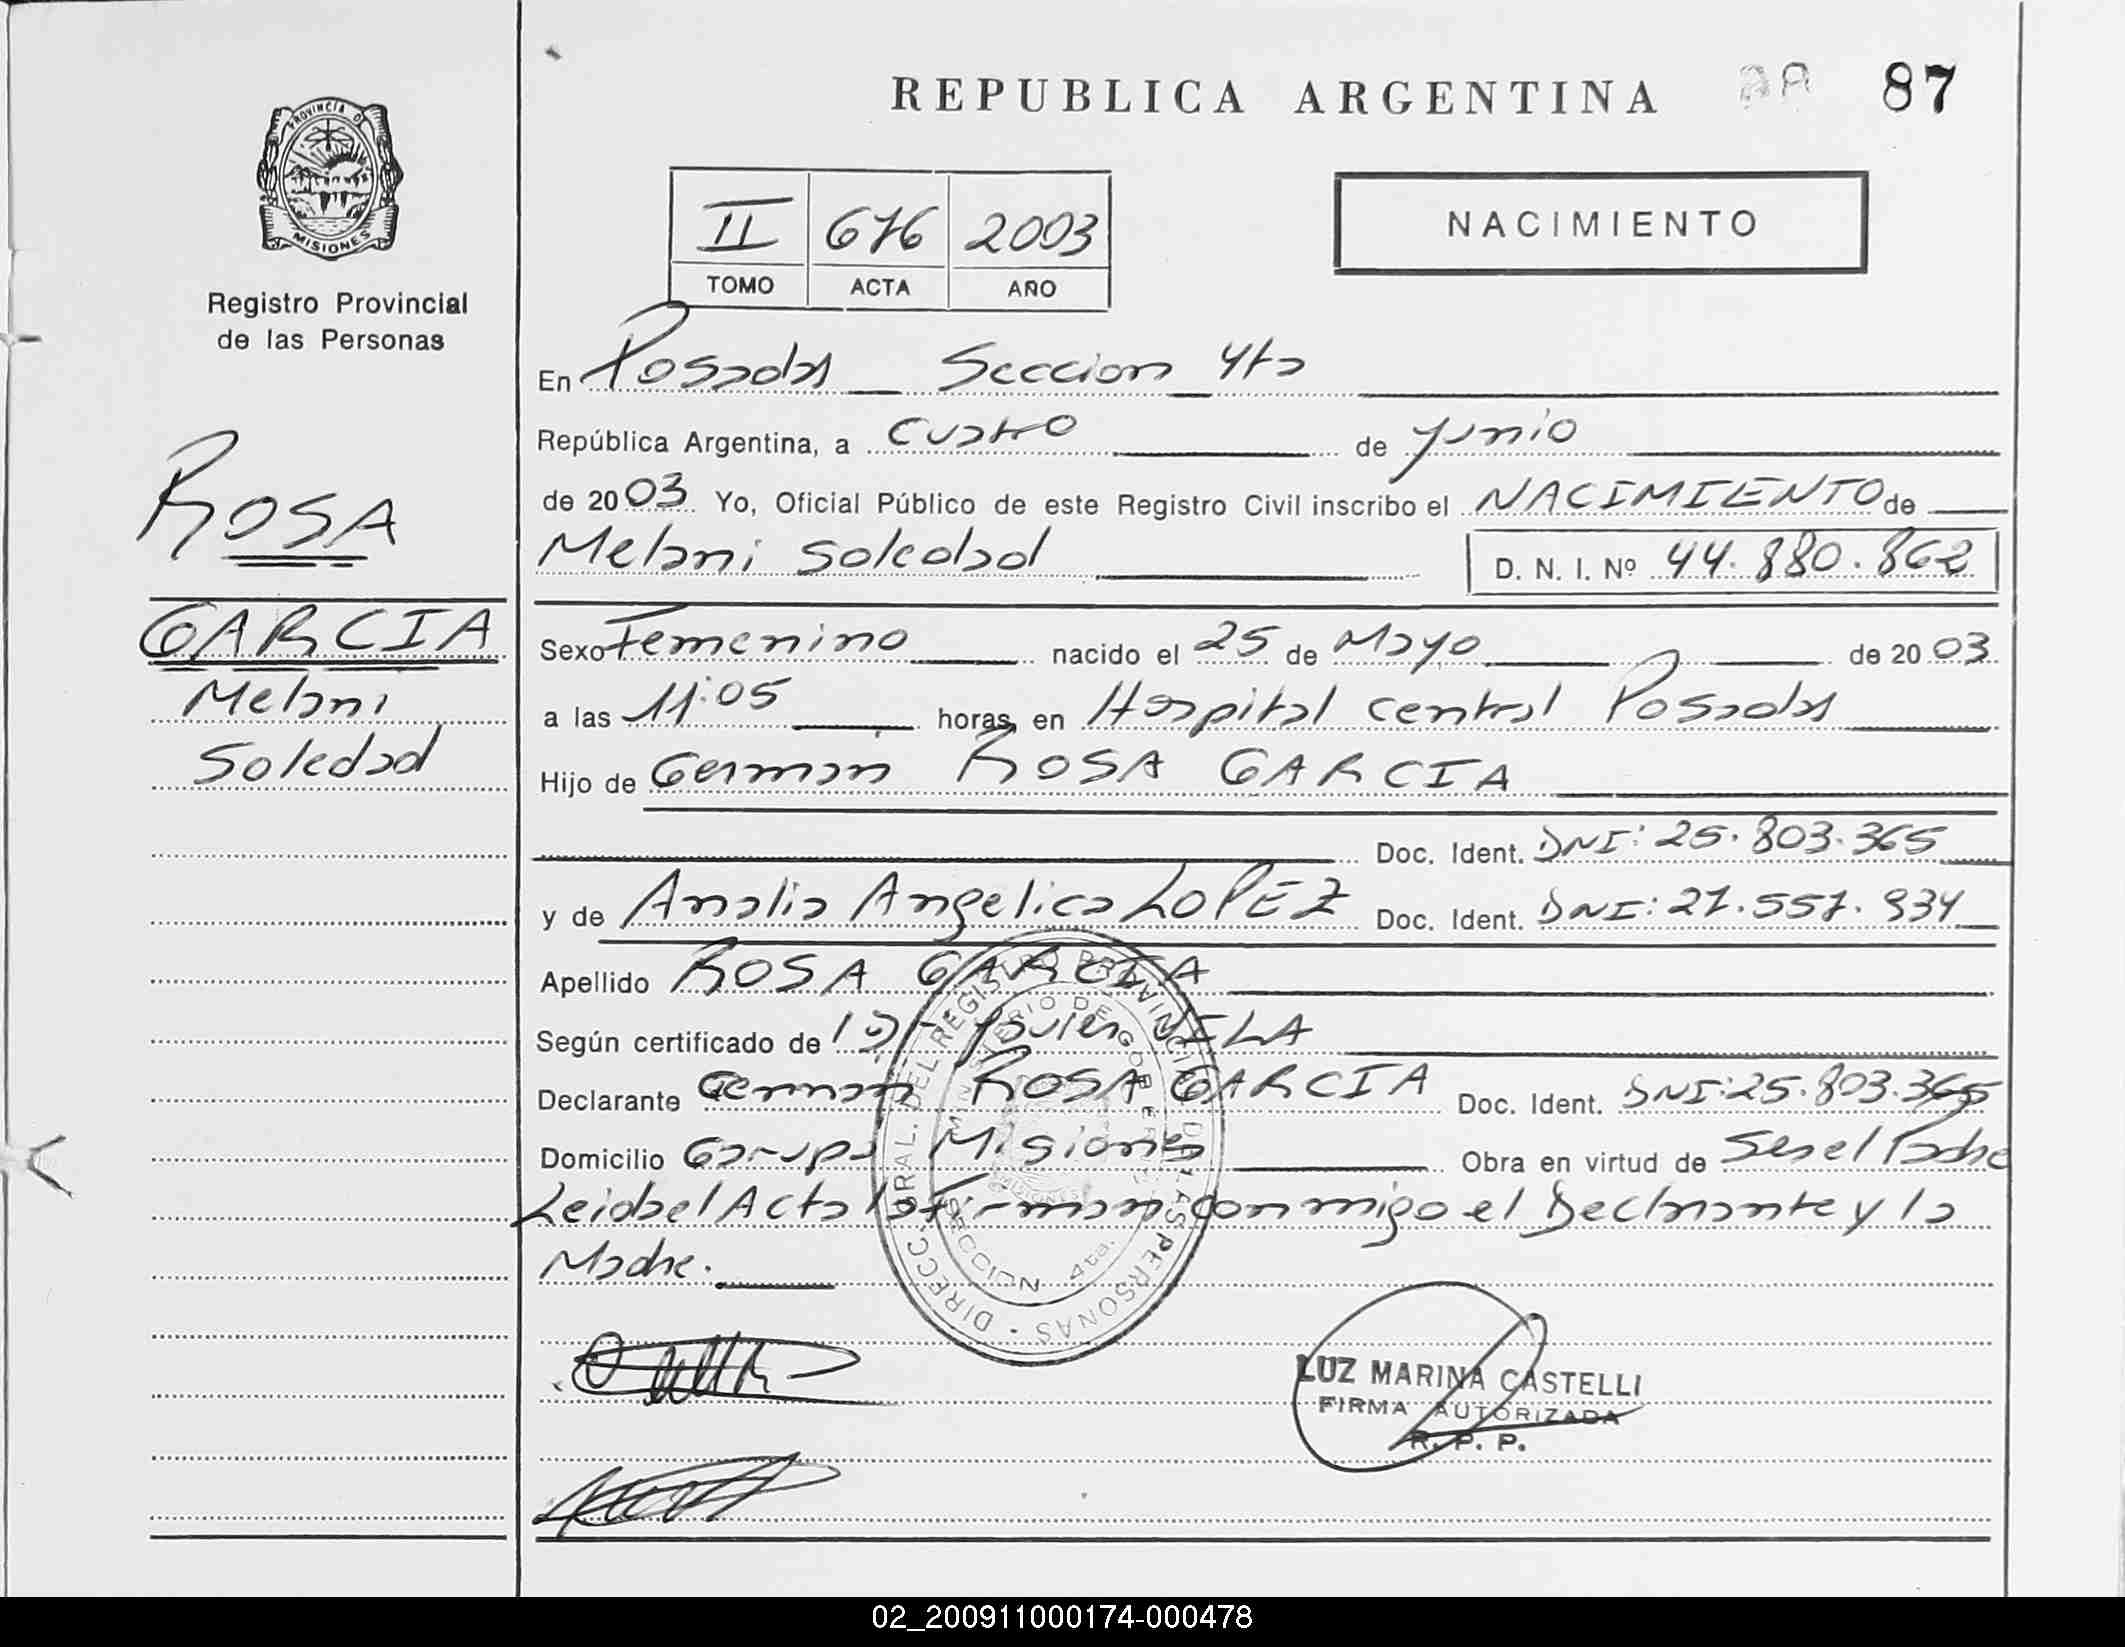 REPUBLICA ARGENTINA 87
PROVINCIA D
MISIONES
Registro Provincial
de las Personas
II 676 2003
TOMO ACTA AÑO
NACIMIENTO
En Posadas Seccion 4ta
República Argentina, a cuatro de Junio
de 2003 Yo, Oficial Público de este Registro Civil inscribo el NACIMIENTO de
Melani Soledad D. N. I. Nº 44.880.862
ROSA
GARCIA
Melani
Soledad
Sexo Femenino nacido el 25 de Mayo de 2003
a las 11:05 horas, en Hospital central Posadas
Hijo de German ROSA GARCIA
Doc. Ident. DNI: 25.803.365
y de Analia Angelica LOPEZ Doc. Ident. DNI: 27.557.934
Apellido ROSA GARCIA
Según certificado de Javier VELA
Declarante German ROSA GARCIA Doc. Ident. DNI: 25.803.365
Domicilio Garupa Misiones Obra en virtud de Ser el Padre
Leida el Acta la Firman conmigo el Declarante y la
Madre.
DIRECC. GRAL. DEL REGISTRO PROVINCIAL DE LAS PERSONAS
MINISTERIO DE GOBIERNO
SECCION 4ta.
LUZ MARINA CASTELLI
FIRMA AUTORIZADA
R. P. P.
02_200911000174-000478